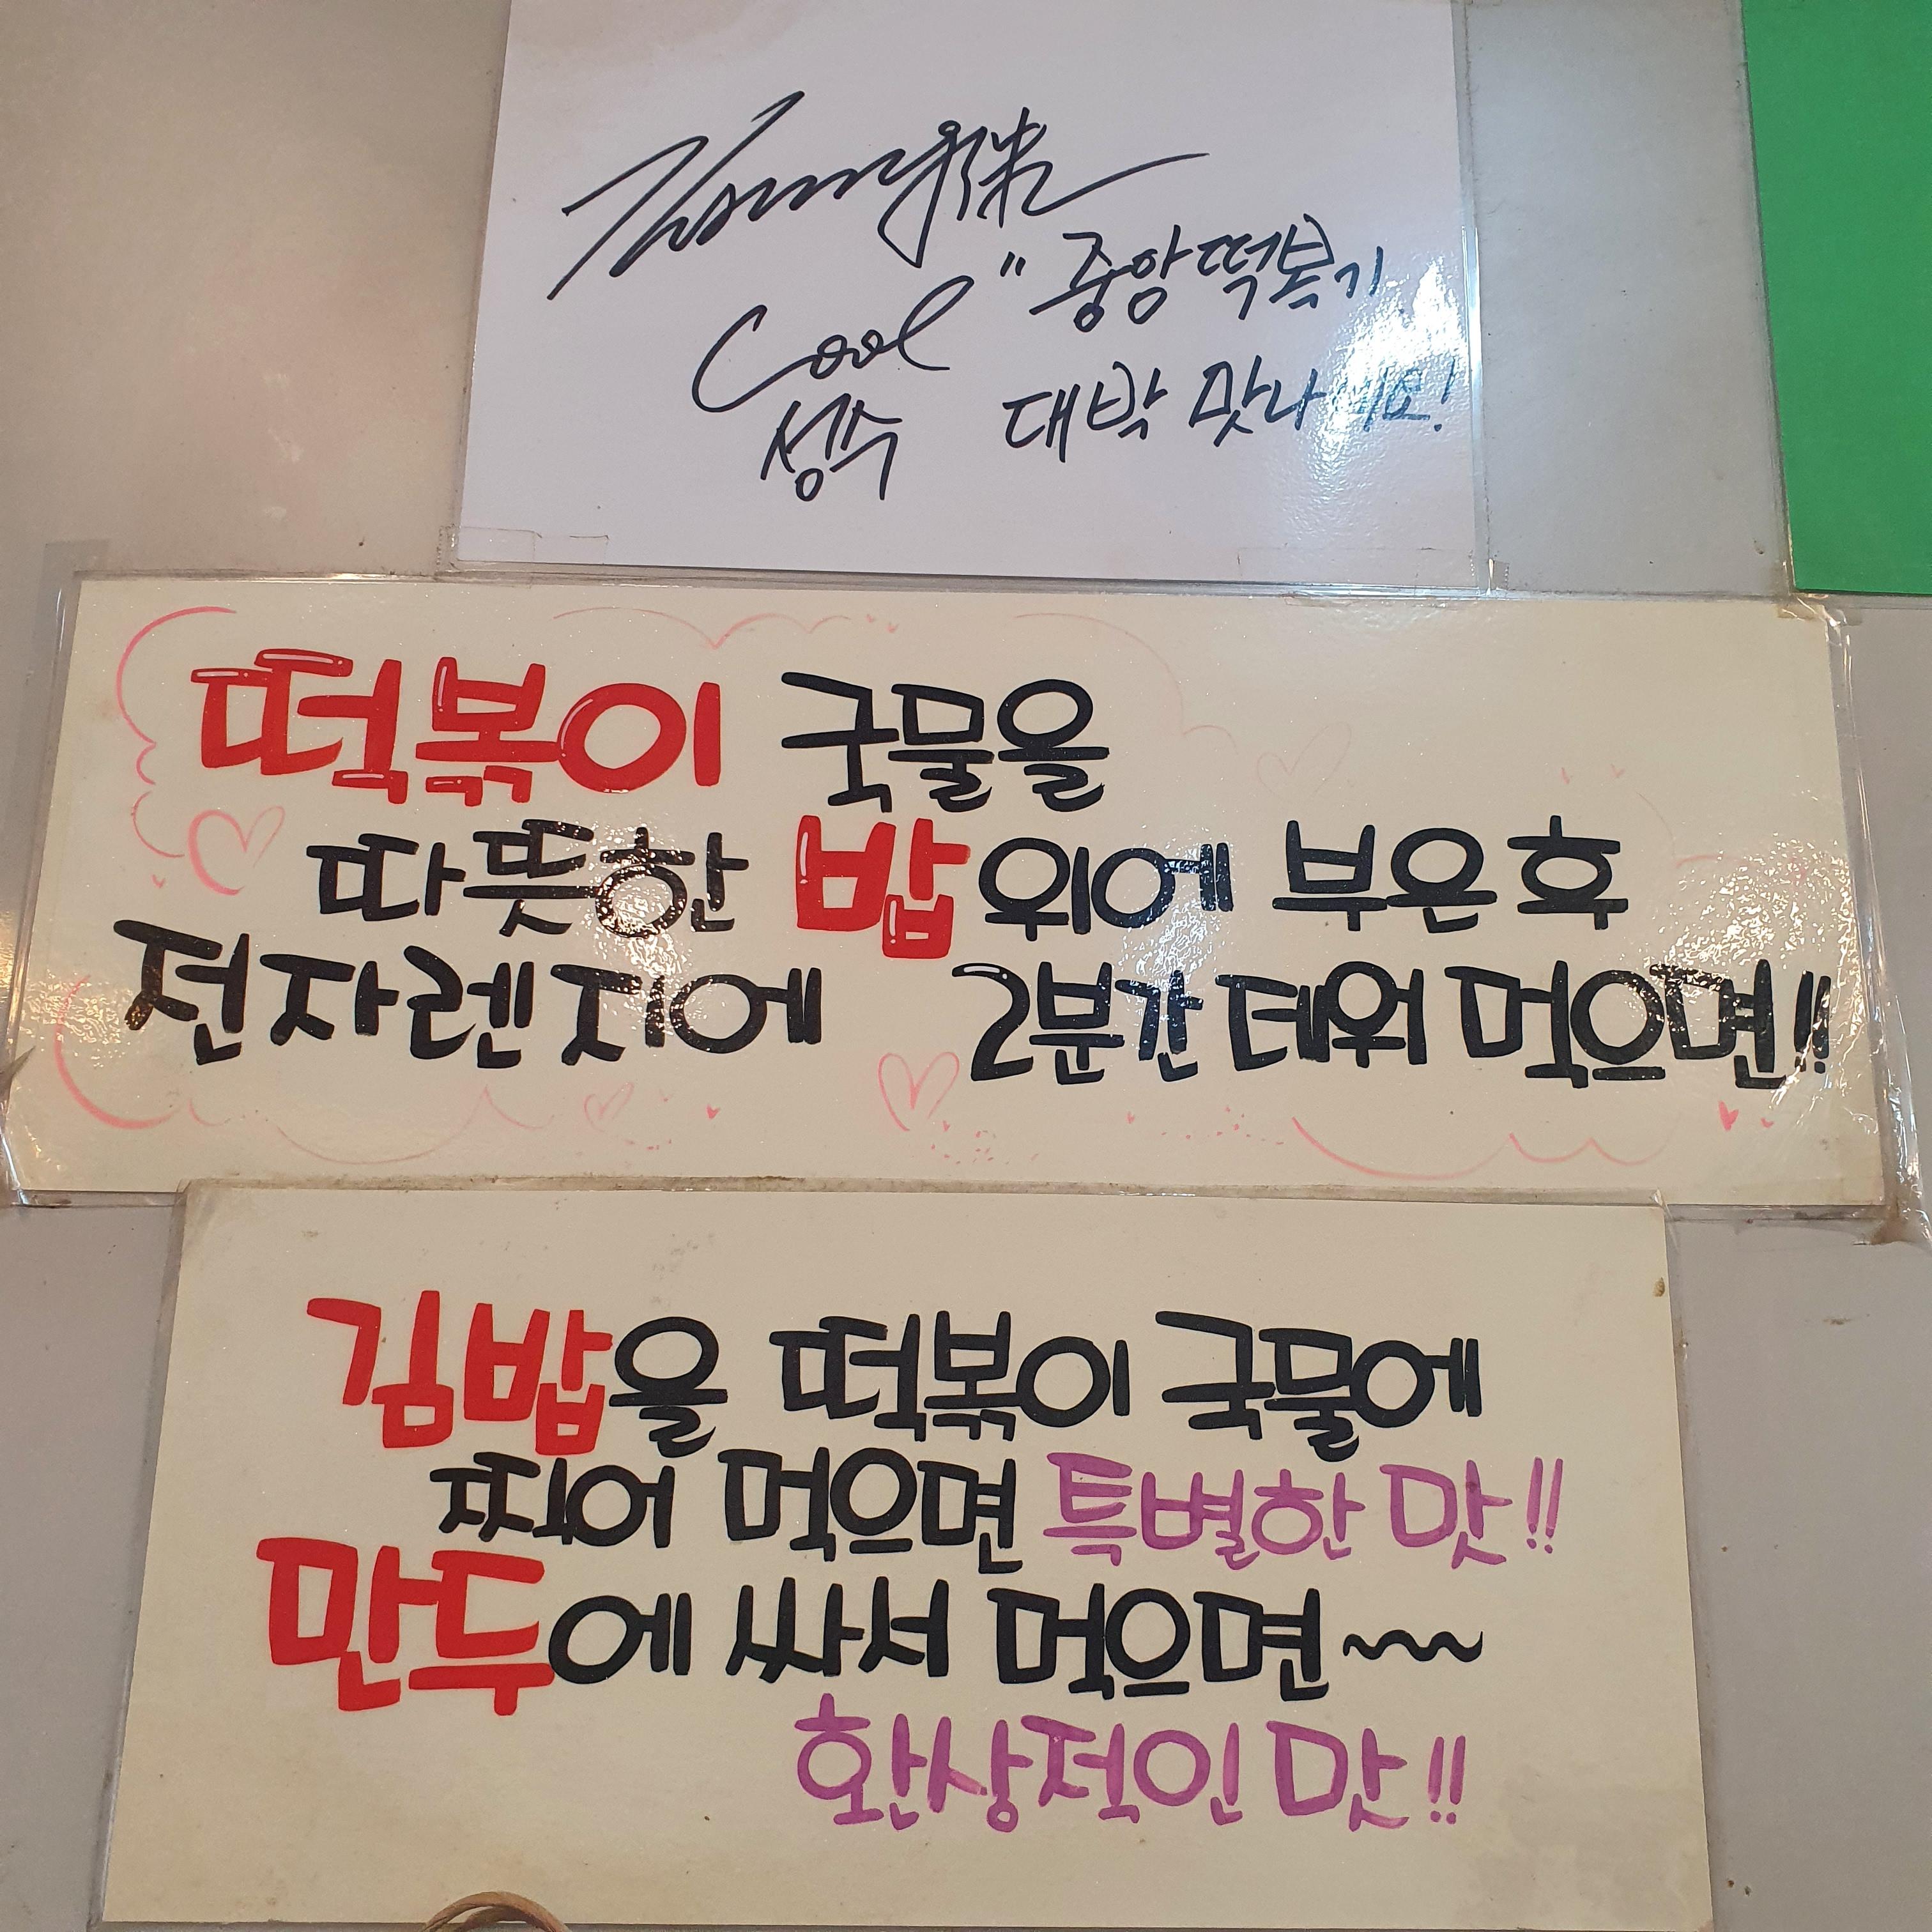 Cool
성수
"중앙떡볶기
대박 맛나세요!
떡볶이 국물을
따뜻한 밥위에 부은후
전자렌지에 2분간 데워 먹으면!!
김밥을 떡볶이 국물에
찌어 먹으면 특별한 맛!!
만두에 싸서 먹으면~~
환상적인 맛!!